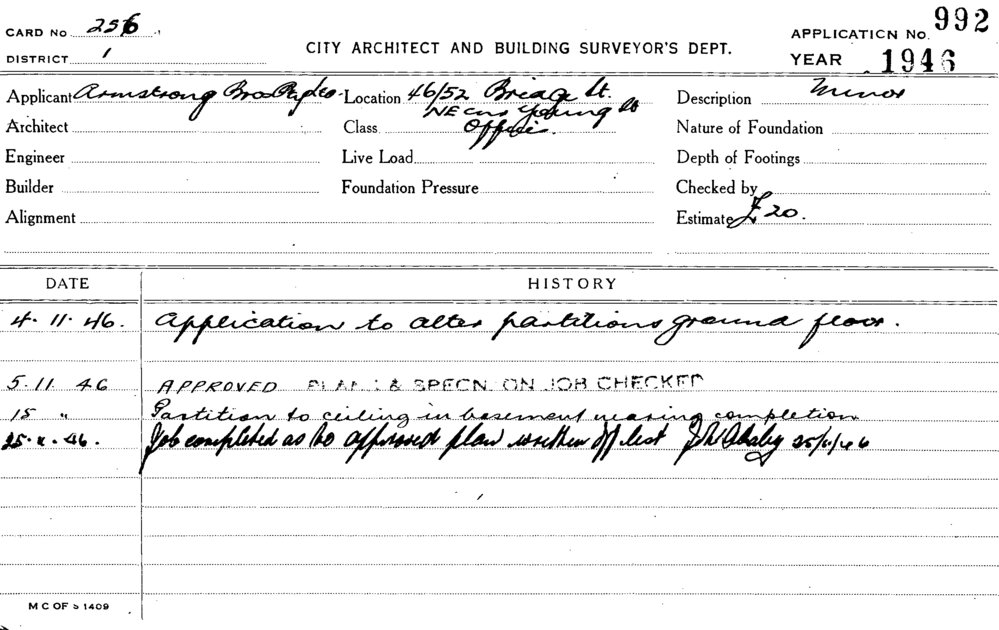 CARD No 256
DISTRICT 1
CITY ARCHITECT AND BUILDING SURVEYOR'S DEPT.
APPLICATION No. 992
YEAR 1946
Applicant Armstrong Bros Pty Co. Location 46/52 Bridge St. Description Minor
NE cnr Young St
Architect Class Offices. Nature of Foundation
Engineer Live Load Depth of Footings
Builder Foundation Pressure Checked by
Alignment Estimate £20.
DATE HISTORY
4.11.46. Application to alter partitions ground floor.
5.11 46 APPROVED PLANS & SPECN. ON JOB CHECKED
15 " Partition to ceiling in basement nearing completion
25.11.46. Job completed as to approved plan written off list 25/11/46
M C OF S 1409